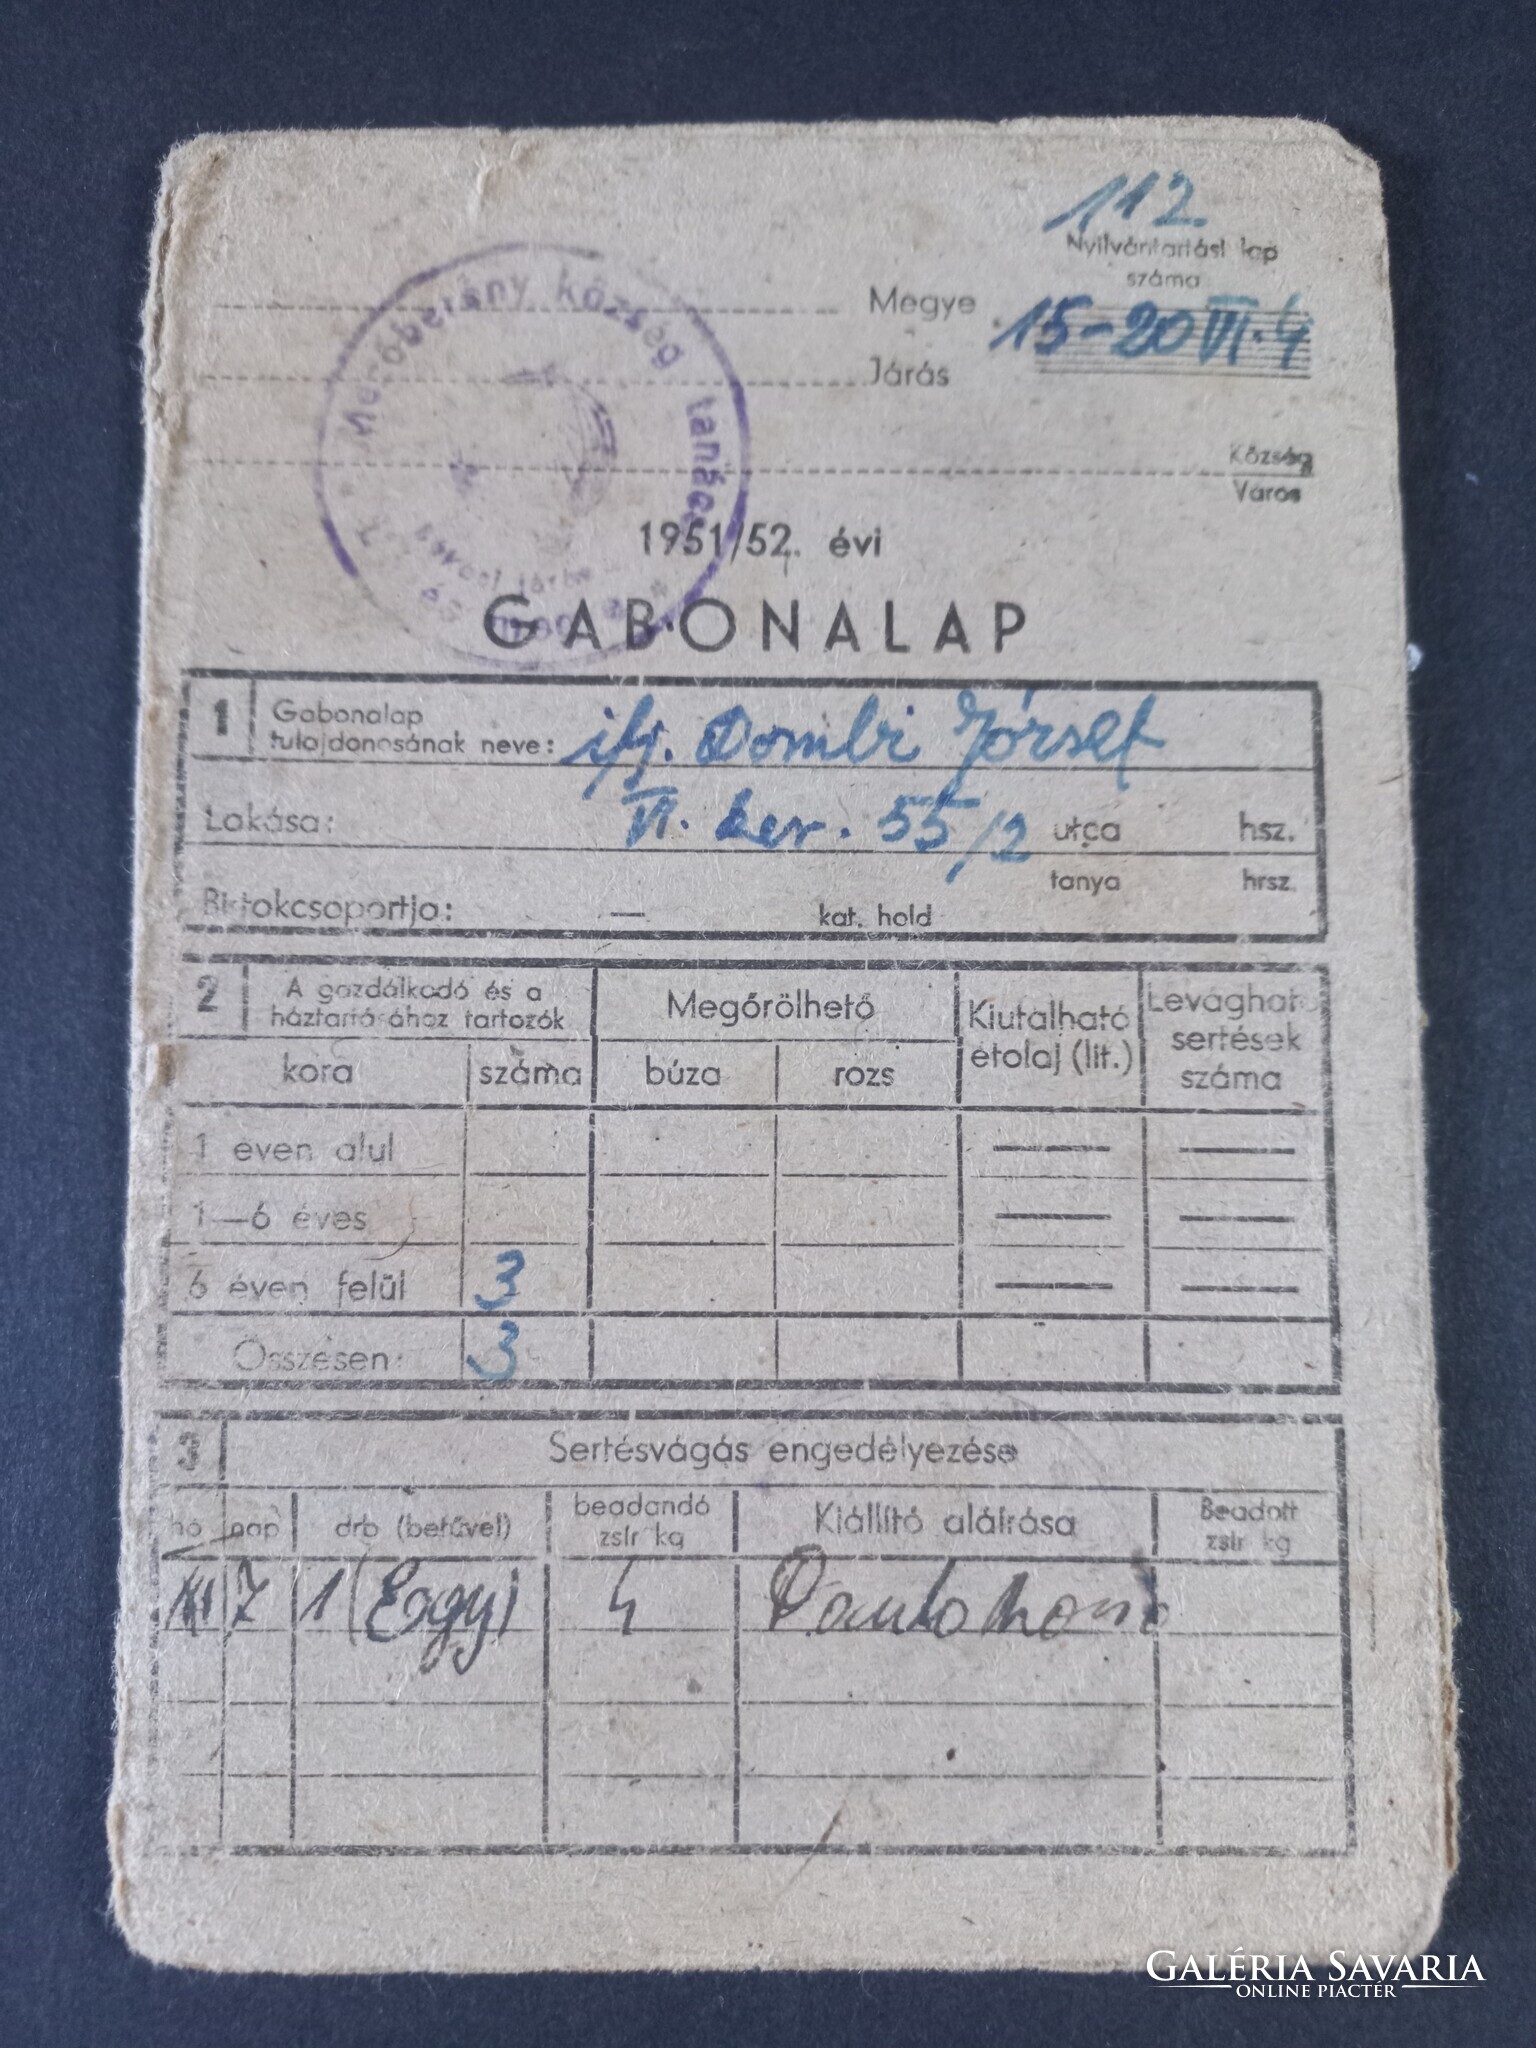 112.
Nyilvántartási lap
száma
Megye
15-20 VI.4
Járás
Község
Város
Mezőberény község tanács
1951/52. évi
GABONALAP
1 Gabonalap
tulajdonosának neve: ifj. Dombi József
Lakása: VI. ker. 55/2 utca hsz.
tanya hrsz.
Birtokcsoportja: — kat. hold
2 A gazdálkodó és a háztartásához tartozók Megőrölhető Kiutalható étolaj (lit.) Levágható sertések száma
kora száma búza rozs
1 éven alul — —
1—6 éves — —
6 éven felül 3 — —
Összesen: 3
3 Sertésvágás engedélyezése
hó nap drb (betűvel) beadandó zsír kg Kiállító aláírása Beadott zsír kg
XII 7 1 (Eggy) 4
GALÉRIA SAVARIA
ONLINE PIACTÉR